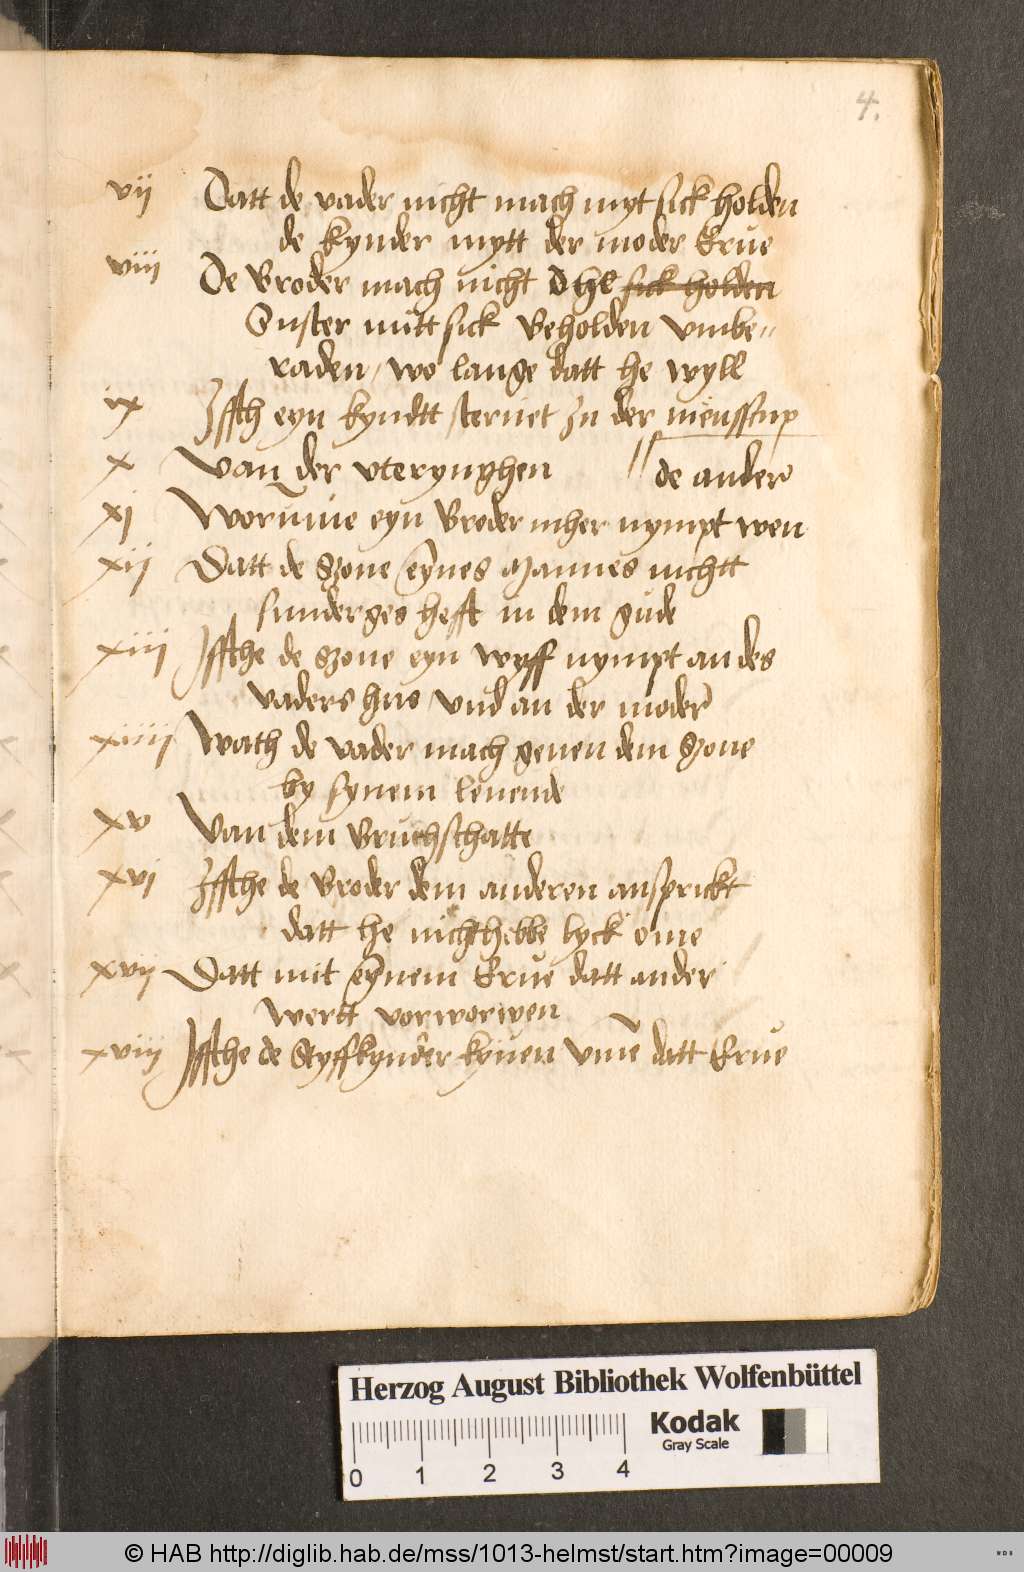 4.
vij Datt de vader nicht mach myt sick holden
de kynder mytt der moder Erue
viij De Broder mach nicht dhe sick holden
Suster mitt sick Beholden vmbe„
raden, wo lange datt he wyll
ix Iffth eyn kyndtt steruet In der mēnsscup
x Van der vterynghen // de ander
xi Worūme eyn Broder mher nympt wen
xij Datt de Szone eynes Mannes nichtt
sunderges hefft in dem gude
xiij Iffthe de Szone eyn wyff nympt an des
vaders hus vnd an der moder
xiiij Wath de vader mach geuen dem Szone
by synem leuende
xv Van dem Bruthschatte
xvi Iffthe de Broder dem anderen anspricktt
datt he nicht hebbe lyck ome
xvij Datt mit eynem Erue datt ander
wertt vorworwen
xviij Iffthe de Styffkynder kyuen vme datt Erue
Herzog August Bibliothek Wolfenbüttel
Kodak
Gray Scale
0 1 2 3 4
© HAB http://diglib.hab.de/mss/1013-helmst/start.htm?image=00009